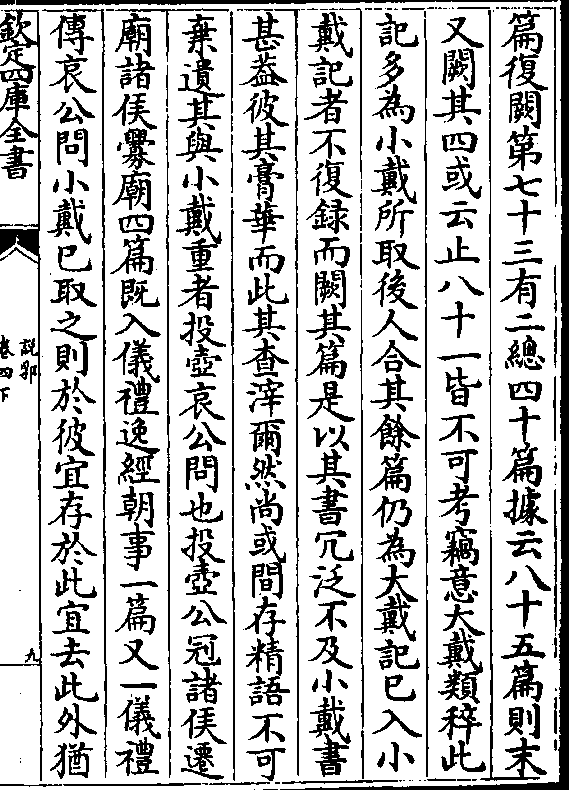 篇復闕第七十三有二總四十篇據云八十五篇則末
又闕其四或云止八十一皆不可考竊意大戴類稡此
記多為小戴所取後人合其餘篇仍為大戴記已入小
戴記者不復録而闕其篇是以其書冗泛不及小戴書
甚葢彼其膏華而此其查滓爾然尚或間存精語不可
棄遺其與小戴重者投壺哀公問也投壺公冠諸侯遷
廟諸侯釁廟四篇既入儀禮逸經朝事一篇又一儀禮
傳哀公問小戴已取之則於彼宜存於此宜去此外猶
欽定四庫全書
說郛
卷四下
九